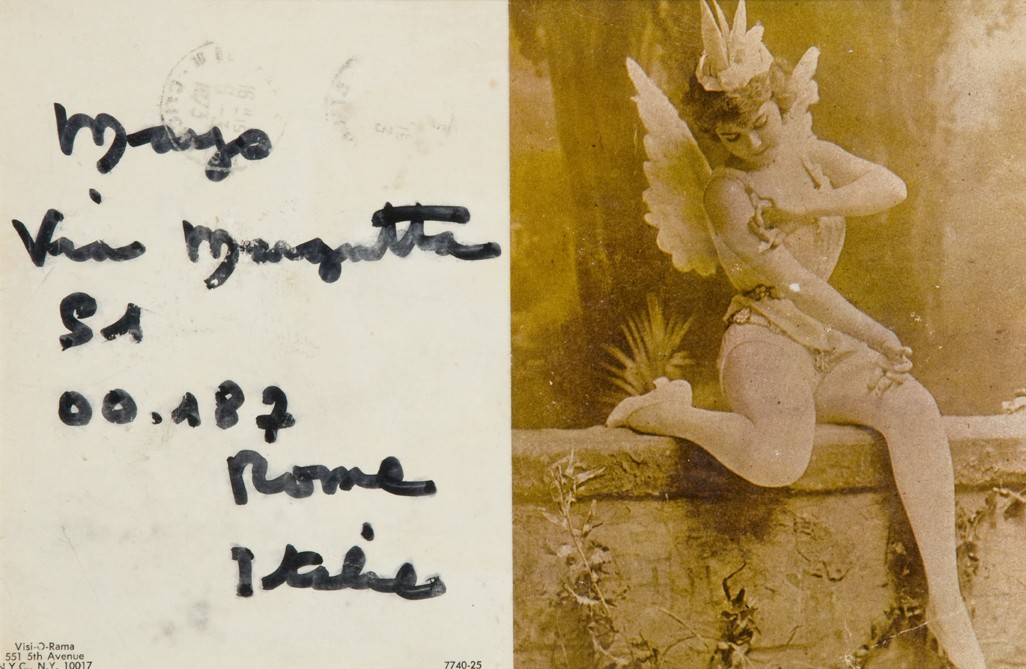 Mayo
Via Margutta
51
00.187
Rome
Italie
Visi-O-Rama
551 5th Avenue
N.Y.C., N.Y. 10017
7740-25